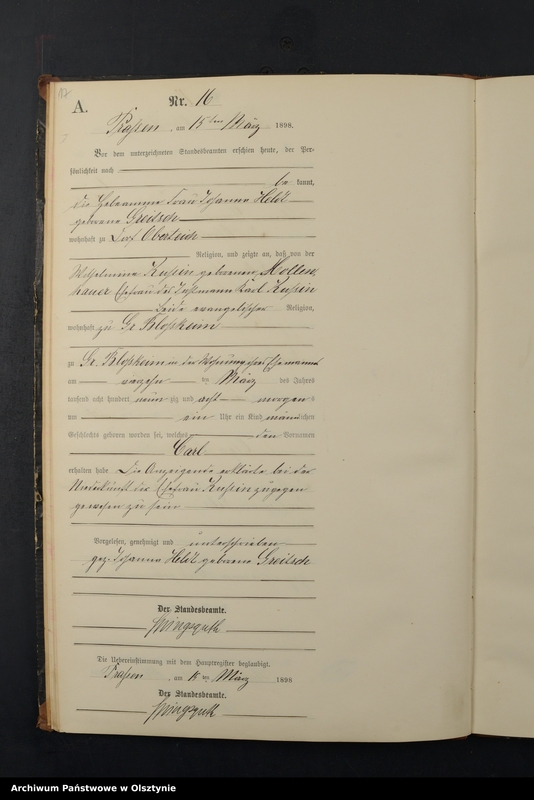 17
A.
Nr. 16
Prassen, am 15ten März 1898.
Vor dem unterzeichneten Standesbeamten erschien heute, der Per-
sönlichkeit nach
be kannt,
die Hebeamme Frau Johanna
geborene Greitsch
wohnhaft zu Dorf
Religion, und zeigte an, daß von der
Wilhelmine Kussin geborenen Hollen
hauer Ehefrau des Karl Kussin
beide evangelischer Religion,
wohnhaft zu Gr.
zu Gr. in der Wohnung ihres Ehemannes
am März des Jahres
tausend acht hundert neun zig und acht morgen s
um ein Uhr ein Kind männ lichen
Geschlechts geboren worden sei, welches den Vornamen
Carl
erhalten habe. Die Anzeigende erklärte bei der
Niederkunft der Ehefrau Kussin zugegen
gewesen zu sein
Vorgelesen, genehmigt und unterschrieben
gez. Johanna geborene Greitsch
Der Standesbeamte.
Die Uebereinstimmung mit dem Hauptregister beglaubigt.
Prassen, am März 1898
Der Standesbeamte.
Archiwum Państwowe w Olsztynie